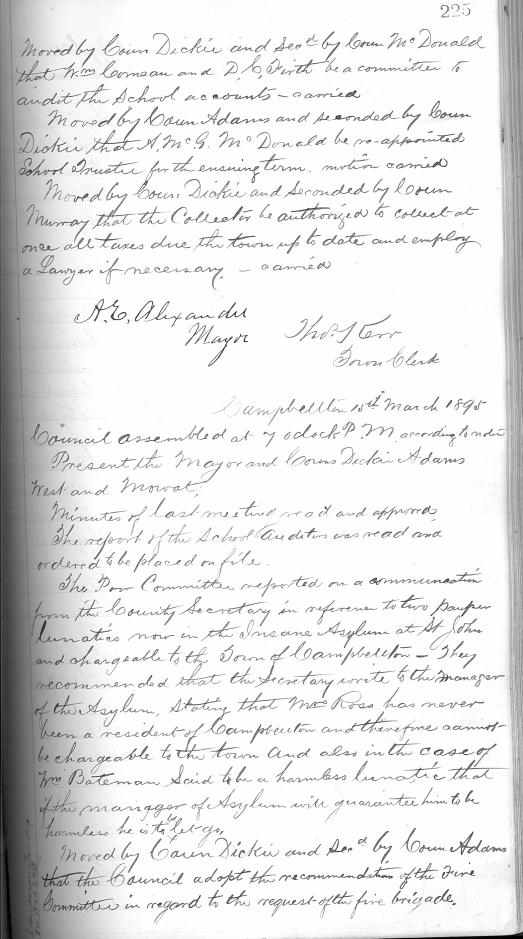 225
Moved by Coun Dickie and Sec<sup>d</sup> by Coun McDonald
that Wm Comeau and D. C. Firth be a committee to
audit the School accounts – carried
Moved by Coun Adams and seconded by Coun
Dickie that A. McG. McDonald be re-appointed
School Trustee for the ensuing term. motion carried
Moved by Coun Dickie and seconded by Coun
Murray that the Collector be authorized to collect at
once all taxes due the town up to date and employ
a Lawyer if necessary – carried
A. E. Alexander
Mayor
Thos. Kerr
Town Clerk
Campbellton 15th March 1895
Council assembled at 7 oclock P.M. according to notice
Present the Mayor and Couns Dickie Adams
West and Mowat,
Minutes of last meeting read and approved
The report of the School Auditors was read and
ordered to be placed on file.
The Poor Committee reported on a communication
from the County Secretary in reference to two pauper
lunatics now in the Insane Asylum at St John
and chargeable to the Town of Campbellton – They
recommended that the Secretary write to the Manager
of the Asylum, Stating that Mrs Ross has never
been a resident of Campbellton and therefore cannot
be chargeable to the town And also in the case of
Wm Bateman Said to be a harmless lunatic that
if the manager of Asylum will guarantee him to be
harmless he is to be let go,
Moved by Coun Dickie and Sec<sup>d</sup> by Coun Adams
that the Council adopt the recommendation of the Fire
Committee in regard to the request of the fire brigade.